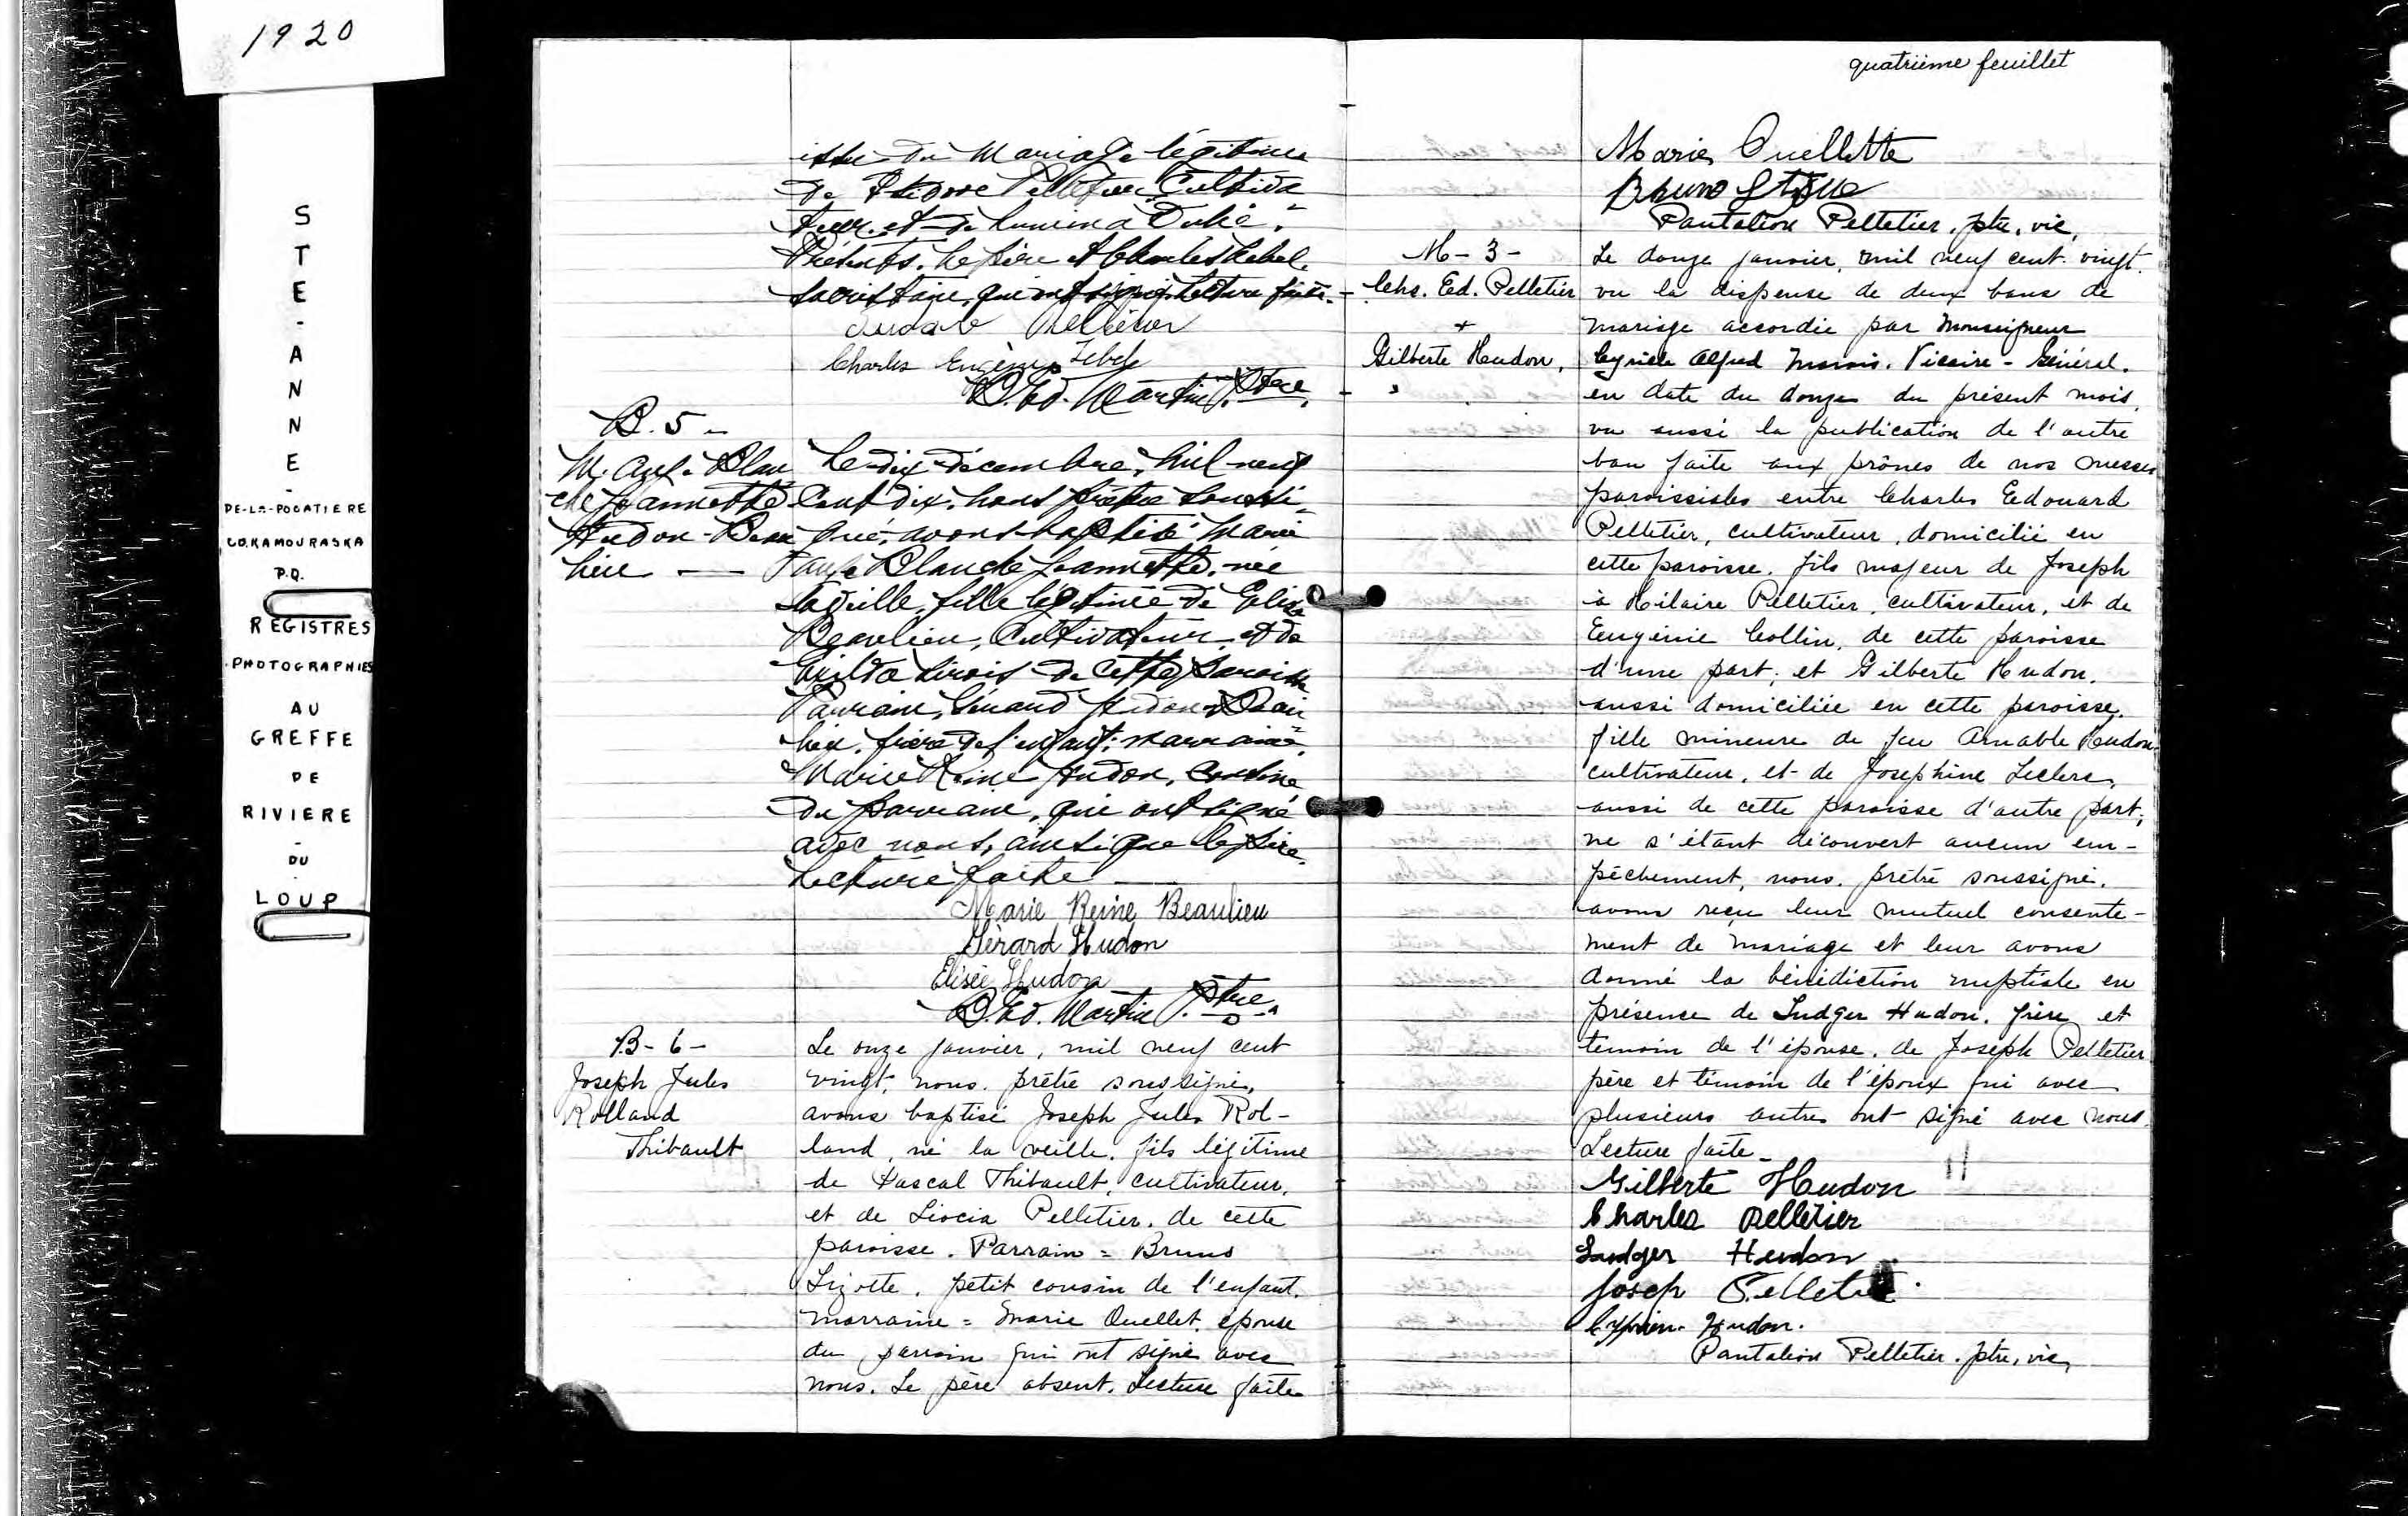 1920
STE-ANNE-
DE-LA-POCATIERE
CO. KAMOURASKA
P.Q.
REGISTRES
PHOTOGRAPHIES
AU
GREFFE
DE
RIVIERE
-
DU
-
LOUP
issu du Mariage légitime
de Isidore Pelletier Cultiva
teur et de Dubé.
Présents. le père et Charles Lebel
sacristain, qui ont signé. Lecture faite.
Pelletier
Charles Eugène Lebel
D. Ed. Martin Ptre.
B. 5 -
M. Blan
che Jeannette
Hudon-Beau
lieu —
Le dix décembre, mil neuf
cent dix. nous prêtre soussi-
gné, avons baptisé Marie
Blanche Jeannette, née
la veille, fille légitime de Elisée
Beaulieu, Cultivateur et de
Sirois de cette paroisse
Parrain, Hudon Beau
lieu, frère de l'enfant; marraine,
Marie Reine Hudon, cousine
du parrain, qui ont signé
avec nous, ainsi que le père.
Lecture faite —
Marie Reine Beaulieu
Gérard Hudon
Elisée Hudon
D. Ed. Martin Ptre.
B - 6 -
Joseph Jules
Rolland
Thibault
Le onze janvier, mil neuf cent
vingt, nous, prêtre soussigné,
avons baptisé Joseph Jules Rol-
land, né la veille, fils légitime
de Pascal Thibault, cultivateur,
et de Pelletier, de cette
paroisse. Parrain = Bruno
Lizotte, petit cousin de l'enfant.
marraine = Marie Ouellet, épouse
du parrain qui ont signé avec
nous. Le père absent. Lecture faite
quatrième feuillet
Marie Ouellette
Bruno
Pantaléon Pelletier, ptre, vic,
M - 3 -
Chs. Ed. Pelletier
+
Gilberte Hudon.
Le douze janvier, mil neuf cent vingt.
vu la dispense de deux bans de
mariage accordée par Monseigneur
Alfred Marois, Vicaire - Général.
en date du douze du présent mois,
vu aussi la publication de l'autre
ban faite aux prônes de nos messes
paroissiales entre Charles Edouard
Pelletier, cultivateur, domicilié en
cette paroisse, fils majeur de Joseph
à Hilaire Pelletier, cultivateur, et de
Eugénie Collin, de cette paroisse
d'une part; et Gilberte Hudon,
aussi domiciliée en cette paroisse,
fille mineure de feu Amable Hudon
cultivateur, et de Josephine Leclerc,
aussi de cette paroisse d'autre part;
ne s'étant découvert aucun em-
pêchement, nous, prêtre soussigné,
avons reçu leur mutuel consente-
ment de mariage et leur avons
donné la bénédiction nuptiale en
présence de Ludger Hudon, frère et
témoin de l'épouse, de Joseph Pelletier
père et témoin de l'époux qui avec
plusieurs autres ont signé avec nous.
Lecture faite -
Gilberte Hudon
Charles Pelletier
Ludger Hudon
Josep Pelletier
Cyprien Hudon.
Pantaléon Pelletier, ptre, vic,